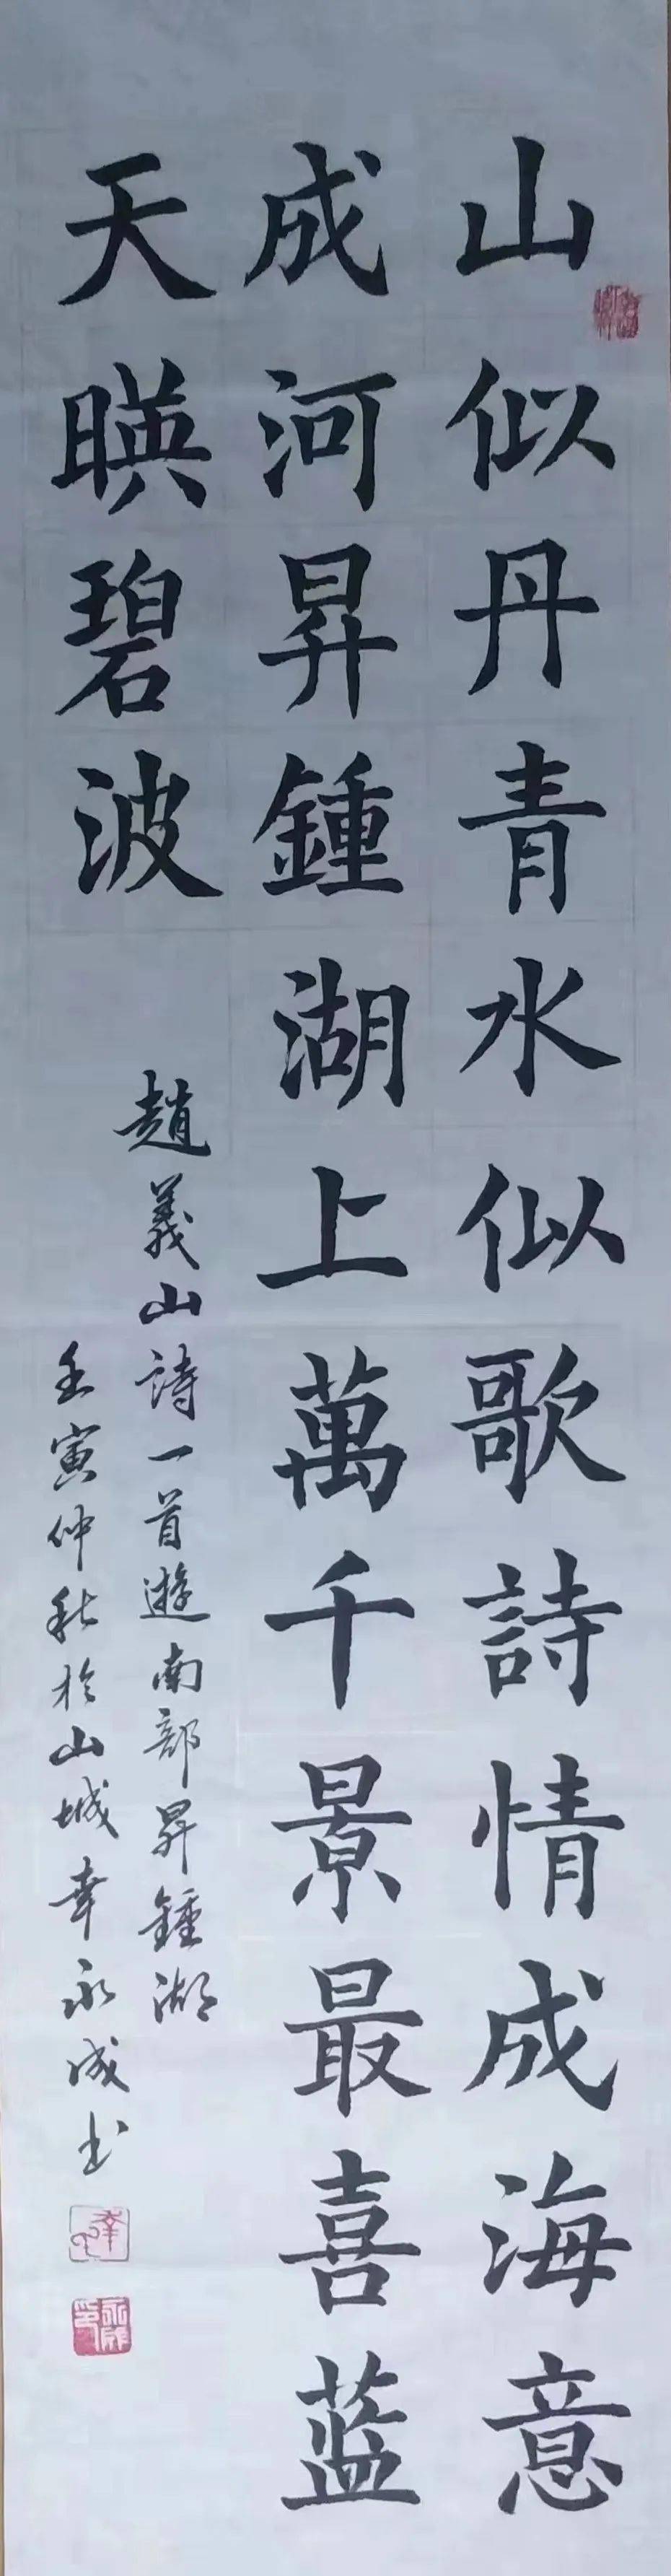 山似丹青水似歌詩情成海意
成河昇鍾湖上萬千景最喜蓝
天暎碧波
趙義山詩一首遊南部昇鍾湖
壬寅仲秋於山城幸永成书